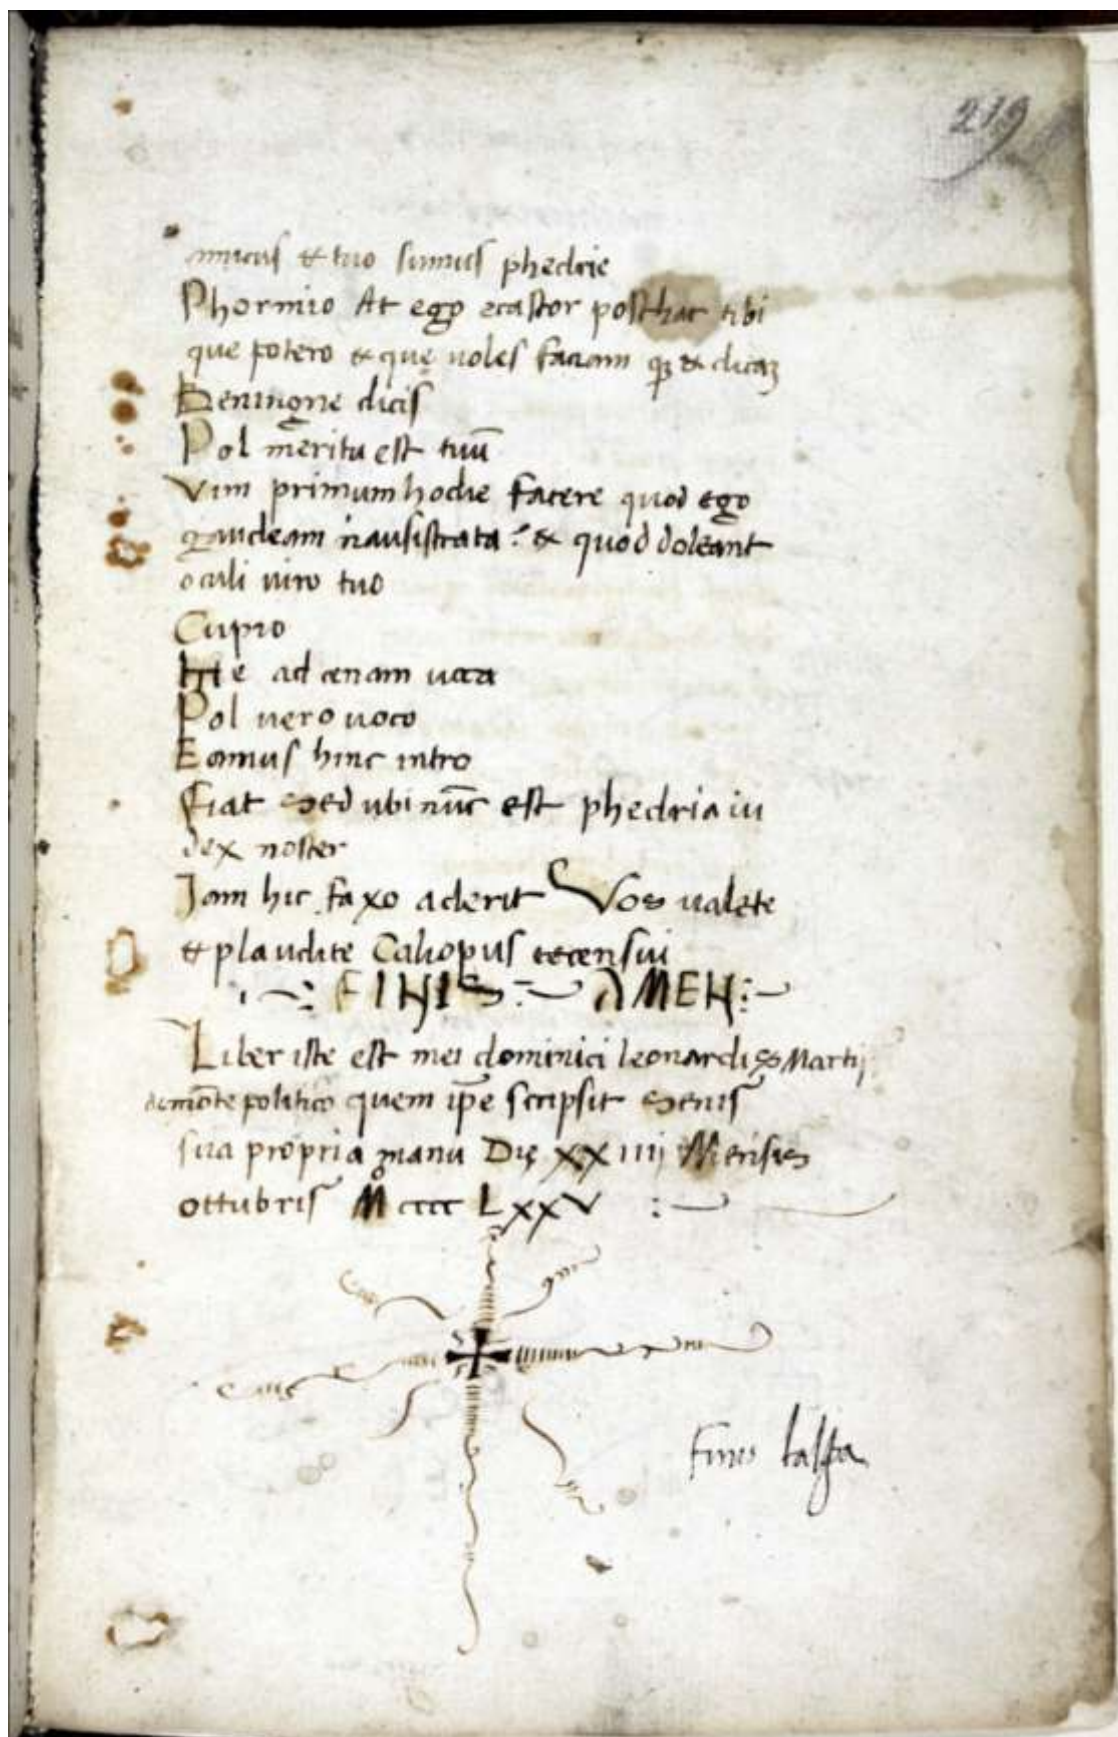 219
amicus & tuo sumus phedrie
Phormio At ego ecastor posthac tibi
que potero & que uoles faciam & dicam
Beningne dicis
Pol meritū est tuū
Vin primum hodie facere quod ego
gaudeam nausistrata ? & quod doleant
oculi uiro tuo
Cupio
Me ad cenam uoca
Pol uero uoco
Eamus hinc intro
Fiat Sed ubi nūc est phedria iu
dex noster
Jam hic faxo aderit Vos ualete
& plaudite Caliopus recensui
FINIS AMEN
Liber iste est mei dominici leonardi Martij
de mōte politico quem ip̄e scripsit Senis
sua propria manu Die XXIIII Mensis
ottubris M cccc LXXV
Finis